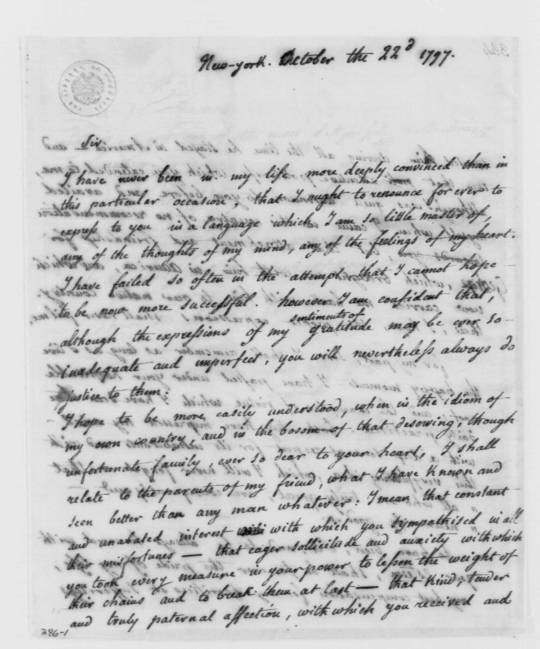 New-york. October the 22d 1797.
Sir
I have never been in my life more deeply convinced than in
this particular occasion, that I ought to renounce for ever to
express to you in a language which I am so little master of,
any of the thoughts of my mind, any of the feelings of my heart.
I have failed so often in the attempt that I cannot hope
to be now more successful. however I am confident that,
although the expressions of my sentiments of gratitude may be ever so
inadequate and imperfect, you will nevertheless always do
justice to them.
I hope to be more easily understood, when in the idiom of
my own country, and in the bosom of that deserving, though
unfortunate family, ever so dear to your heart, I shall
relate to the parents of my friend, what I have known and
seen better than any man whatever: I mean that constant
and unabated interest with which you sympathised in all
their misfortunes — that eager sollicitude and anxiety with which
you took every measure in your power to lessen the weight of
their chains and to break them at last — that kind, tender
and truly paternal affection, with which you received and
386-1